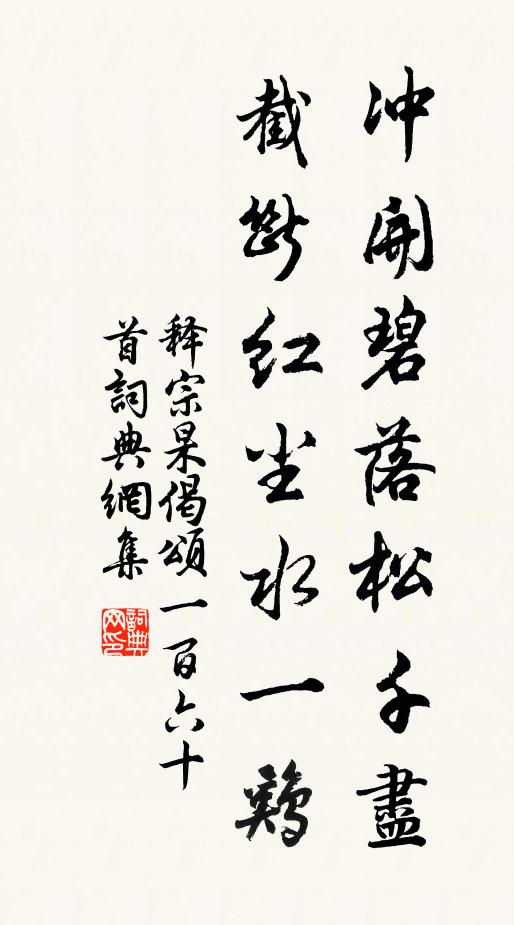 冲開碧落松千盡
截斷红尘水一鷄
释宗杲偈頌一百六十
首詞典網集
詞典
网印